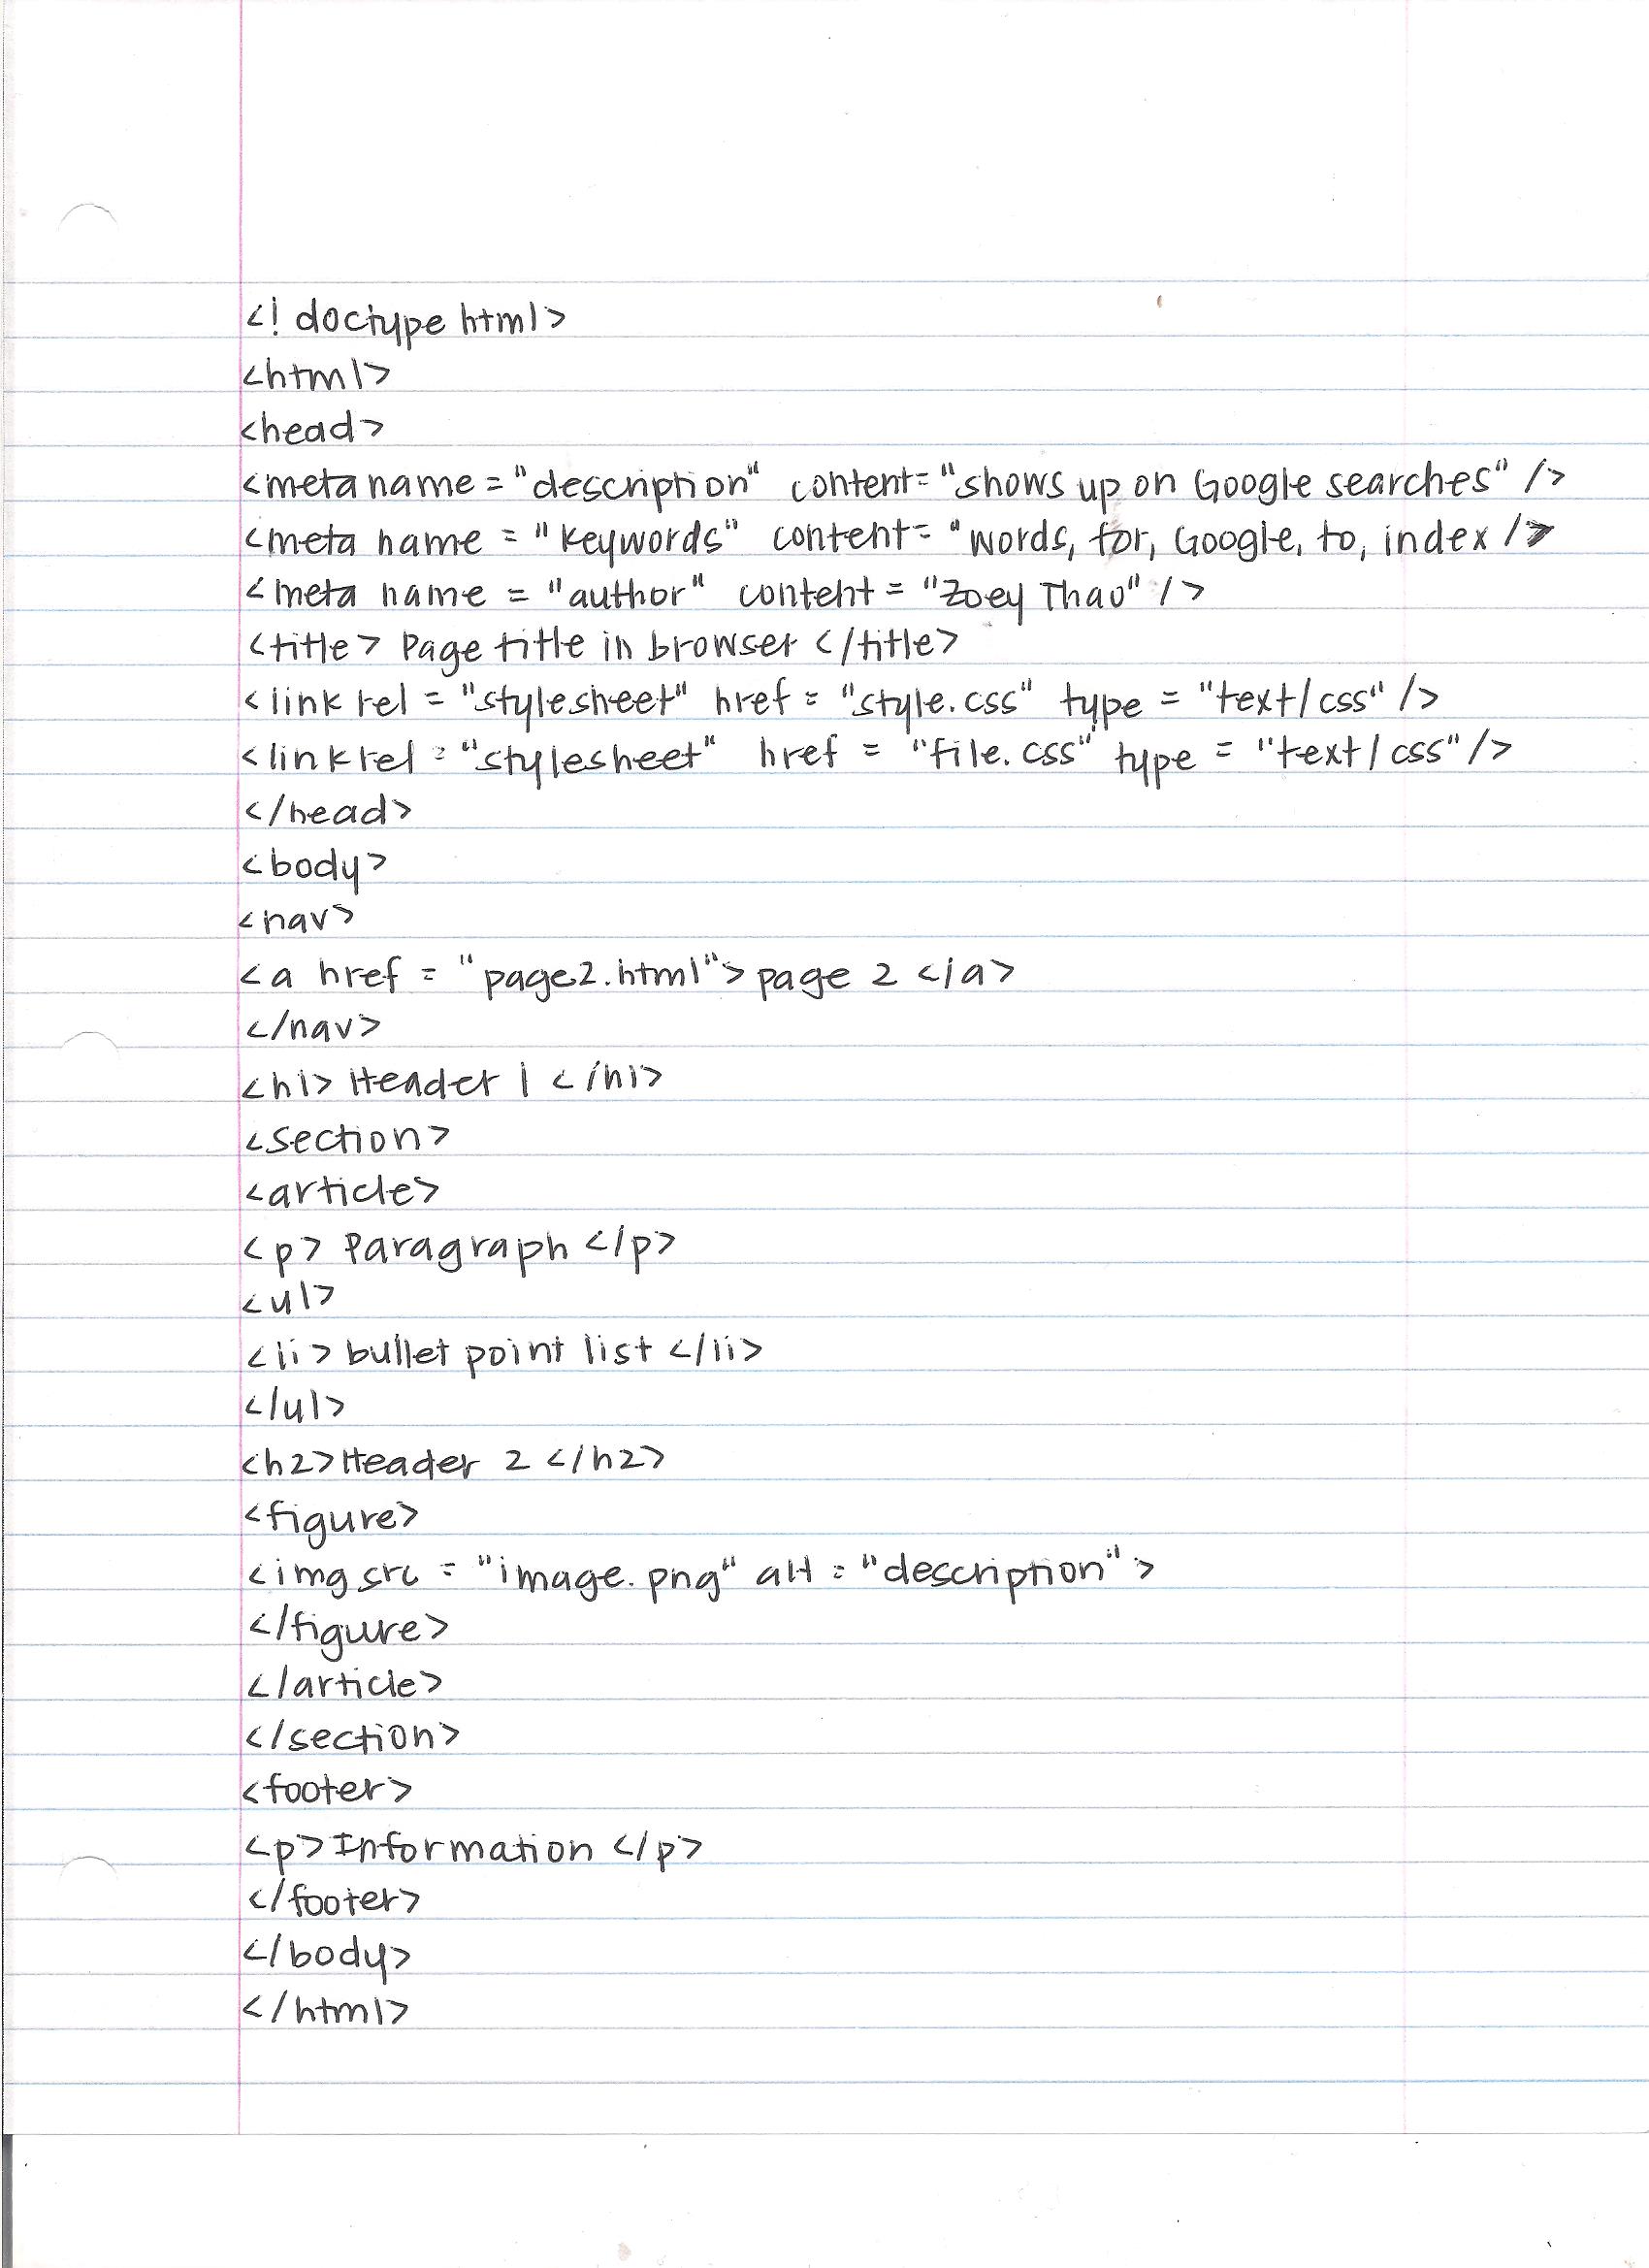 <! doctype html>
<html>
<head>
<meta name = "description" content= "shows up on Google searches" />
<meta name = "keywords" content= "words, for, Google, to, index />
<meta name = "author" content = "Zoey Thao" />
<title> Page title in browser </title>
<link rel = "stylesheet" href = "style.css" type = "text/css" />
<link rel = "stylesheet" href = "file.css" type = "text/css" />
</head>
<body>
<nav>
<a href = "page2.html"> page 2 </a>
</nav>
<h1> Header 1 </h1>
<section>
<article>
<p> Paragraph </p>
<ul>
<li> bullet point list </li>
</ul>
<h2> Header 2 </h2>
<figure>
<img src = "image.png" alt = "description" >
</figure>
</article>
</section>
<footer>
<p> Information </p>
</footer>
</body>
</html>